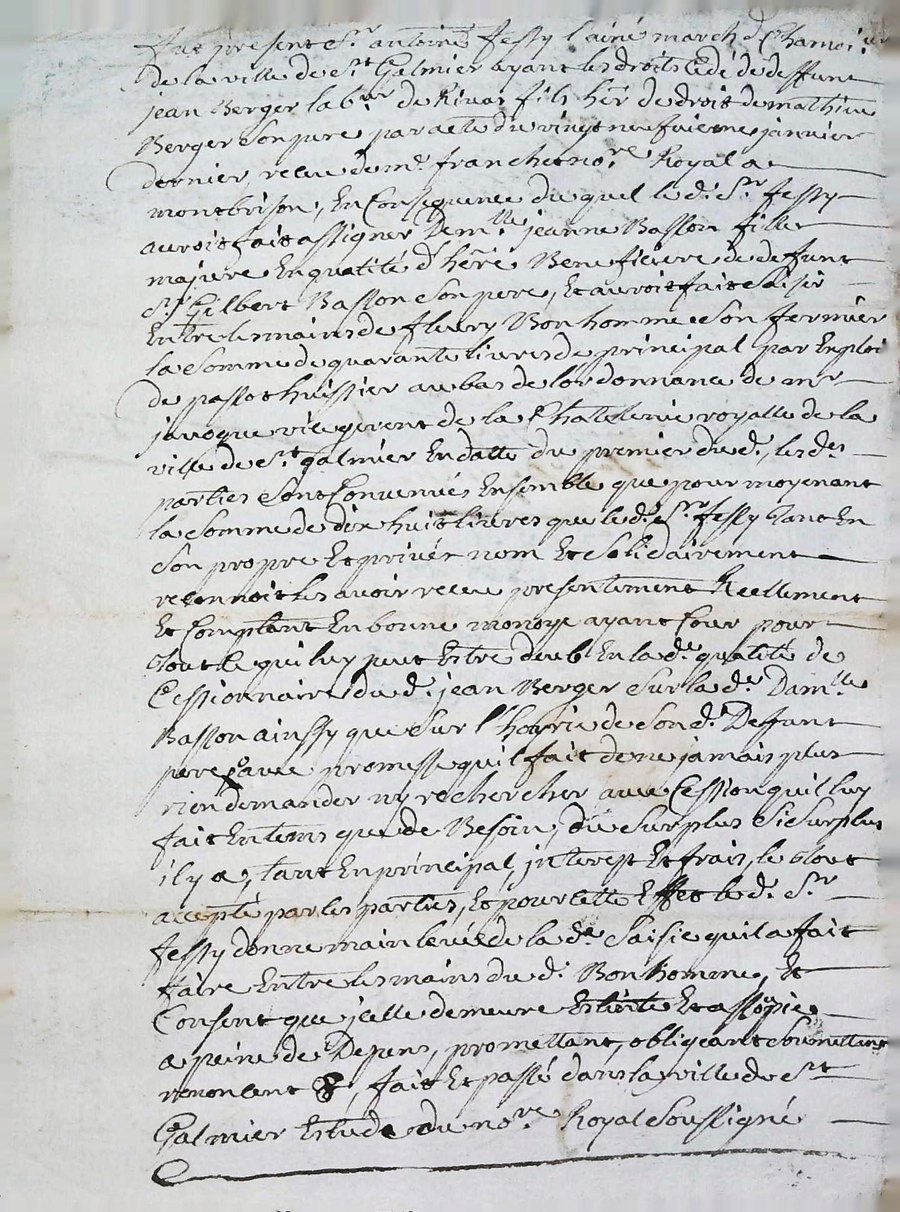 fut present Sr. antoine Jessy l'ainé march.d Chamoi
de la ville de St. Galmier ayant les droits Cédé de deffunt
jean Berger lab.eur de Rivas fils her. de droit de mathieu
Berger Son pere par acte du vingt neufuieme janvier
dernier, receu de me. franchet no.re Royal a
montbrison, En Consequence du quel le d. Sr. Jessy
auroit fait assigner Dem.lle jeanne Basson fille
majure En qualité d'here. Beneficiere de defunt
Sr. Gilbert Basson Son pere, Et auroit fait Saisir
Entre les mains de fleury Bonhomme Son fermier
la Somme de quarante livres de principal par Emploi
de passot huissier au bas de l'ordonnance de mr.
javogue vicegerent de la Chatelenie royalle de la
ville de St. galmier En datte du premier du d., les des.
parties Sont Convenues Ensemble que pour moyenant
la Somme de dix huit livres que le d. Sr. Jessy tant En
Son propre Et privér nom Et Solidairement
reconnoit les avoir receu presentement Reellement
Et Comptant En bonne monoye ayant Cour pour
tout Ce qui luy peut Estre deub En la de. qualité de
Cessionnaire du d. jean Berger Sur la de. Dam.lle
Basson ainssy que Sur l'hoirie de Son d. Deffunt
pere, avec promesse qu'il fait de ne jamais plus
rien demander ny rechercher avec Cession quil luy
fait En tems que de Besoin, du Surplus Si Surplus
il y a, tant En principal, interest Et frais, le tout
accepté par les parties, Et pour cette Effet le d. Sr.
Jessy donne main levée de la de. Saisie quil a fait
faire Entre les mains du d. Bonhomme, Et
Consent que jcelle demeure Esteinte Et assopie
a peine de Depens, promettant, obligeant Soumettant
renoncant &, fait Et passé dans la ville de St.
Galmier Estude du no.re Royal Soussigné